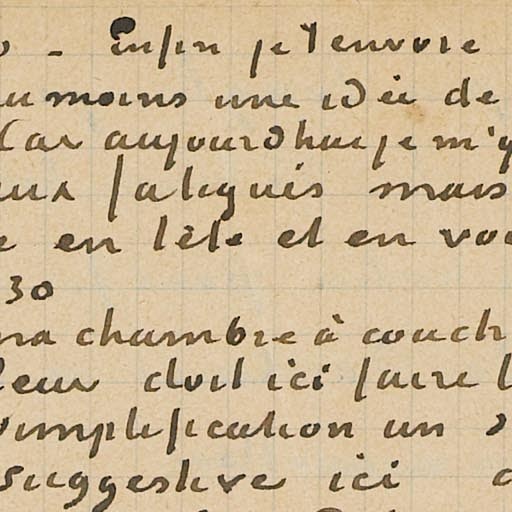 - Enfin je t'envoie
au moins une idée de
Car aujourd'hui je m'y
eux fatigués mais
en tête et en voi
30
ma chambre à couch
leur doit ici faire l
simplification un
suggestive ici